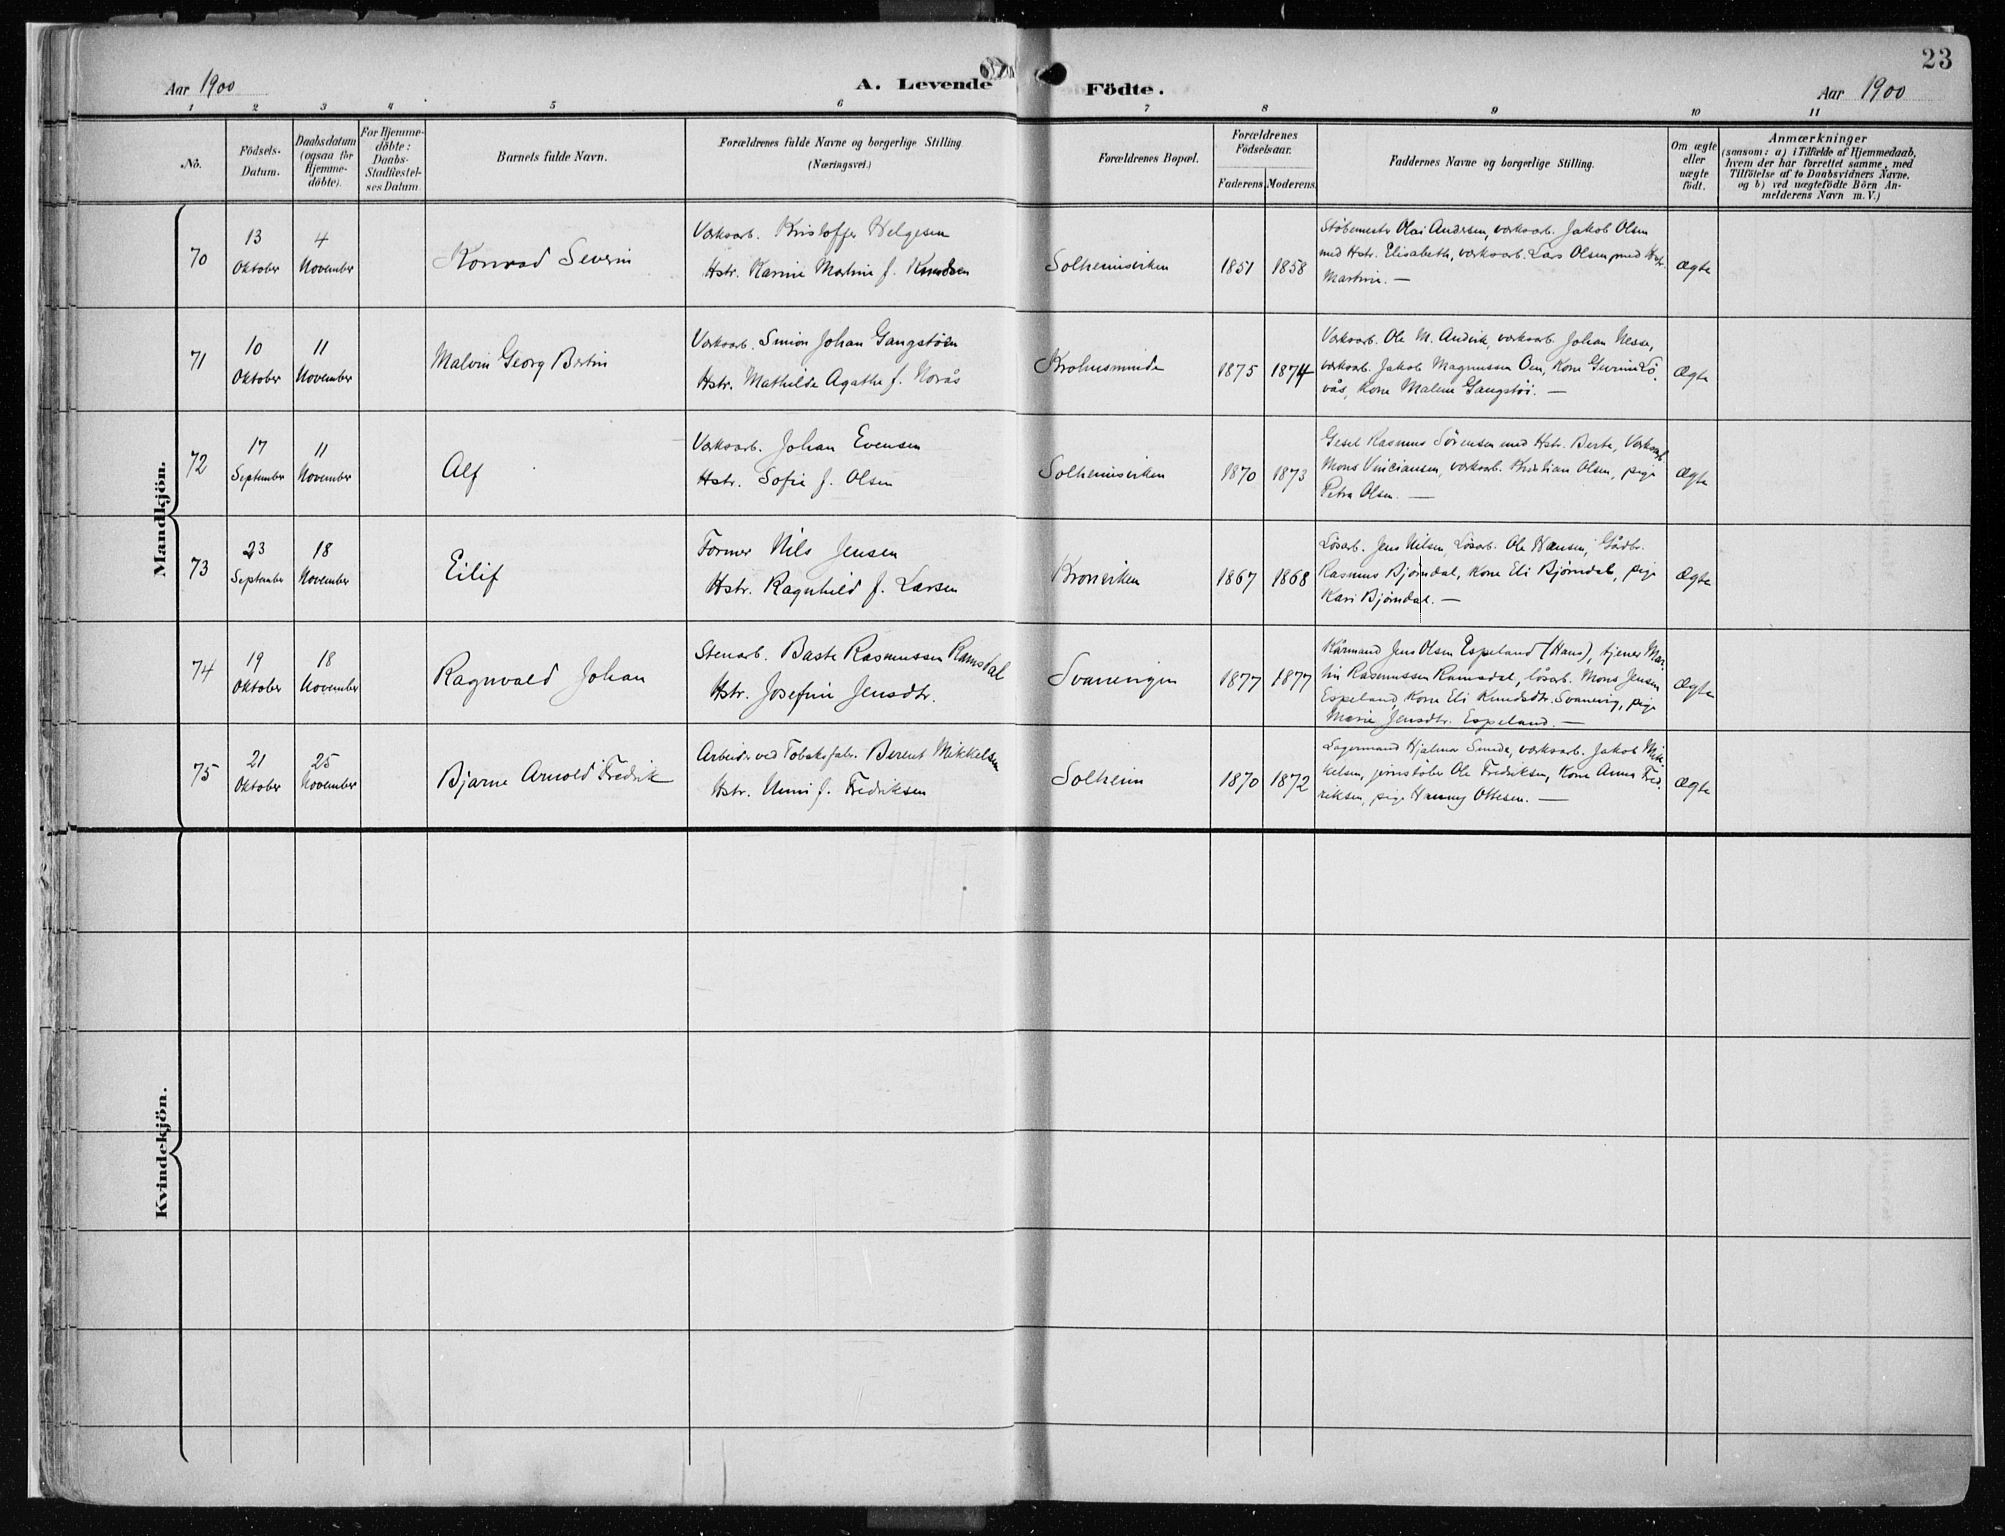 23
Aar 1900
A. Levende Födte.
Aar 1900
1 2 3 4 5 6 7 8 9 10 11
No.
Födsels-
Datum.
Daabsdatum
(ogsaa for
Hjemme-
døbte).
For Hjemme-
döbte:
Daabs-
Stadfæstel-
ses Datum
Barnets fulde Navn.
Forældrenes fulde Navne og borgerlige Stilling.
(Næringsvei.)
Forældrenes Bopæl.
Forældrenes
Födselsaar.
Faderens Moderens
Faddernes Navne og borgerlige Stilling.
Om ægte
eller
uægte
födt.
Anmærkninger
(saasom: a) i Tilfælde af Hjemmedaab,
hvem der har forrettet samme, med
Tilföielse af to Daabsvidners Navne.
og b) ved uægtefödte Börn An-
melderens Navn m. V.)
Mandkjön.
70
13
Oktober
4
November
Konrad Severin
Værksarb. Kristoffer Helgesen
Hstr. Karine Martine f. Knudsen
Solheimsviken
1851
1858
Støbemester Olai Andersen, værksarb. Jakob Olsen
med Hstr. Elisabeth, værksarb. Lars Olsen med Hstr.
Martine. —
Ægte
71
10
Oktober
11
November
Malvin Georg Bertin
Værksarb. Simon Johan Gangstöen
Hstr. Mathilde Agathe f. Norås
Krohnsminde
1875
1874
Værksarb. Ole M. Andvik, værksarb. Johan Nesse,
værksarb. Jakob Magnussen Oen, Kone Gurine Lö-
vås, Kone Malene Gangstöi. —
Ægte
72
17
September
11
November
Alf
Værksarb. Johan Evensen
Hstr. Sofie f. Olsen
Solheimsviken
1870
1873
Gesel Rasmus Sörensen med Hstr. Berte, Værksarb.
Mons Vinciansen, værksarb. Kristian Olsen, pige
Petra Olsen. —
Ægte
73
23
September
18
November
Eilif
Former Nils Jensen
Hstr. Ragnhild f. Larsen
Kronviken
1867
1868
Løsarb. Jens Nilsen, Løsarb. Ole Hansen, Gådbr.
Rasmus Bjørndal, Kone Eli Bjørndal, pige
Kari Bjørndal. —
Ægte
74
19
Oktober
18
November
Ragnvald Johan
Stenarb. Baste Rasmussen Ramsdal
Hstr. Josefine Jensdtr.
Svanevigen
1877
1877
Kårmand Jens Olsen Espeland (Haus), tjener Mar-
tin Rasmussen Ramsdal, løsarb. Mons Jensen
Espeland, Kone Eli Knudsdtr. Svanevig, pige
Marie Jensdtr. Espeland. —
Ægte
75
21
Oktober
25
November
Bjarne Arnold Fredrik
Arbeider ved Tobaksfabr. Berent Mikkelsen
Hstr. Unni f. Fredriksen
Solheim
1870
1872
Lagermand Hjalmar Sunde, værksarb. Jakob Mik-
kelsen, jernstøber Ole Fredriksen, Kone Anna Fred-
riksen, pige Hanny Ottesen. —
Ægte
Kvindekjön.